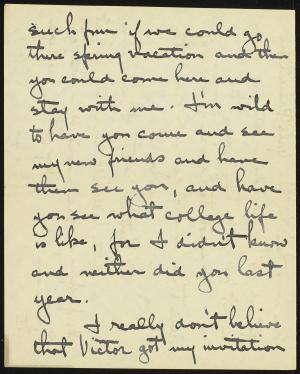 such fun if we could go
there spring vacation and then
you could come here and
stay with me. I'm wild
to have you come and see
my new friends and have
them see you, and have
you see what college life
is like, for I didn't know
and neither did you last
year.
I really don't believe
that Victor got my invitation